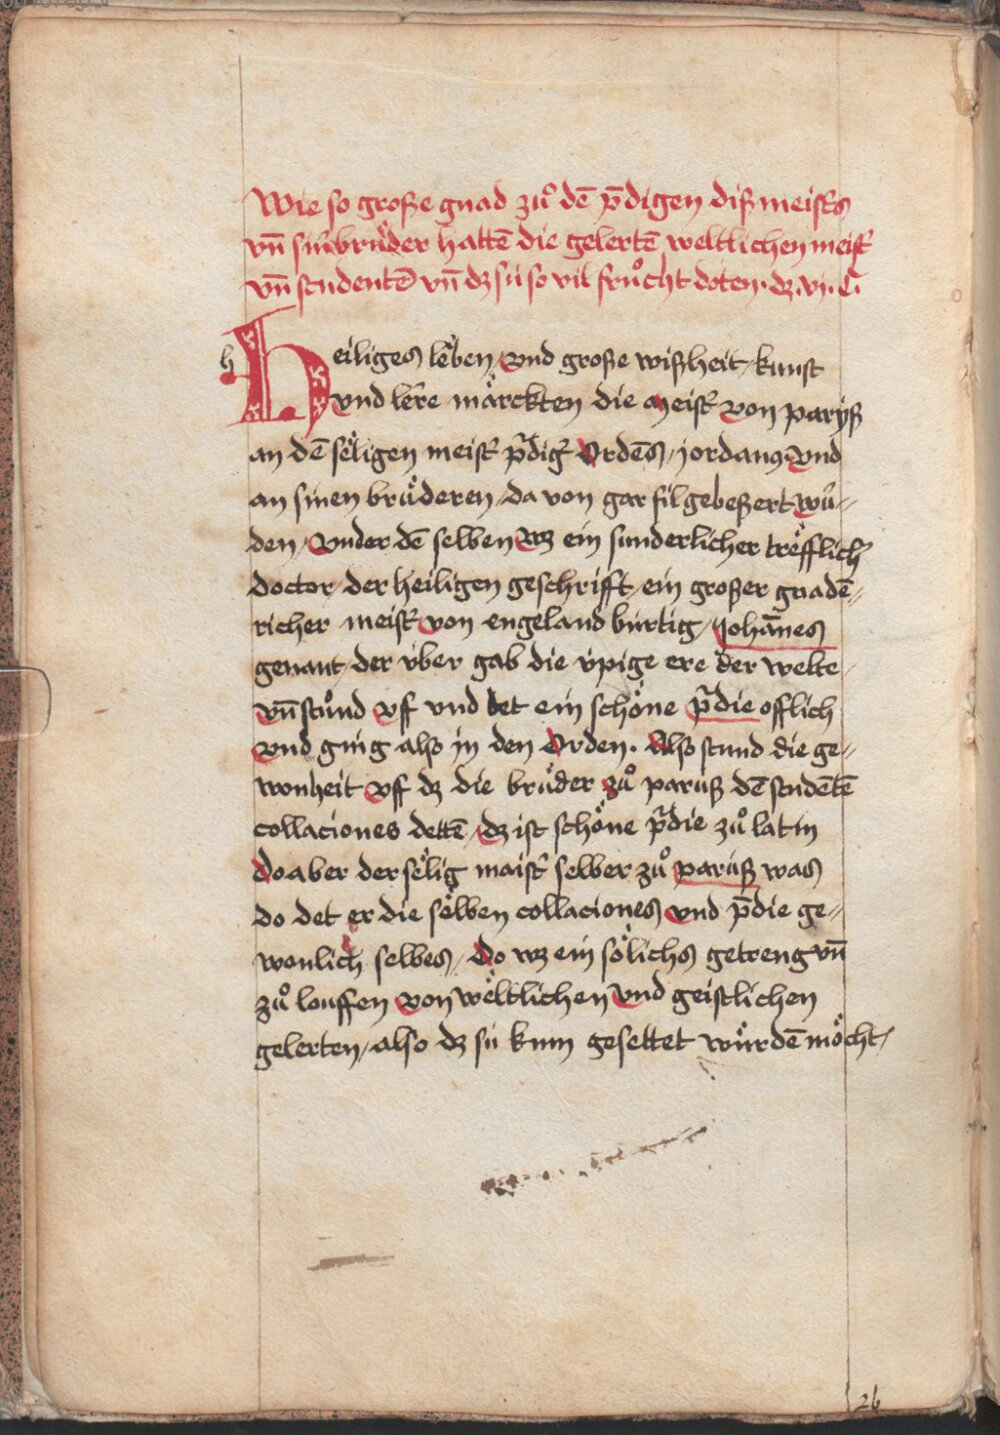 Wie so große gnad zuͦ dē p̄digen diß meist̛s
vn̄ sinbruͤder hattē die gelertē weltlichen meist̛
vn̄ studentē vn̄ dz sú so vil fruͦcht doten. dz .vj. C.
h
Heiliges lëben / vnd große wißheit / kunst
vnd lere märckten die meist̛ von paryß
an dē sëligen meist̛ p̄dig̛ Ordēs / jordanꝰ. vnd
an sinen bruͤderen / da von gar fil gebeßert wur=
den / Vnder dē selben wz ein sunderlicher trëfflich̛
doctor / der heiligen geschrifft / ein großer gnadē=
richer meist̛ von engeland búrtig / Johānes
genant / der v́ber gab die v́pige ere der welte /
vn̄ stuͦnd vff vnd det ein schöne p̄die offlich
vnd ging also in den Orden. Also stund die ge=
wonheit vff dz die bruͤder zuͦ parúß dē studētē
collaciones dettē / dz ist schöne p̄die zuͦ latin
Do aber der sëlig maist̛ selber zuͦ parúß was
do det er die sëlben collaciones vnd p̄die ge=
wonlich selbes / Do wz ein sölichs getreng vn̄
zuͦ louffen von wëltlichen vnd geistlichen
gelerten / also dz sú kum gesettet wúrdē möcht /
26